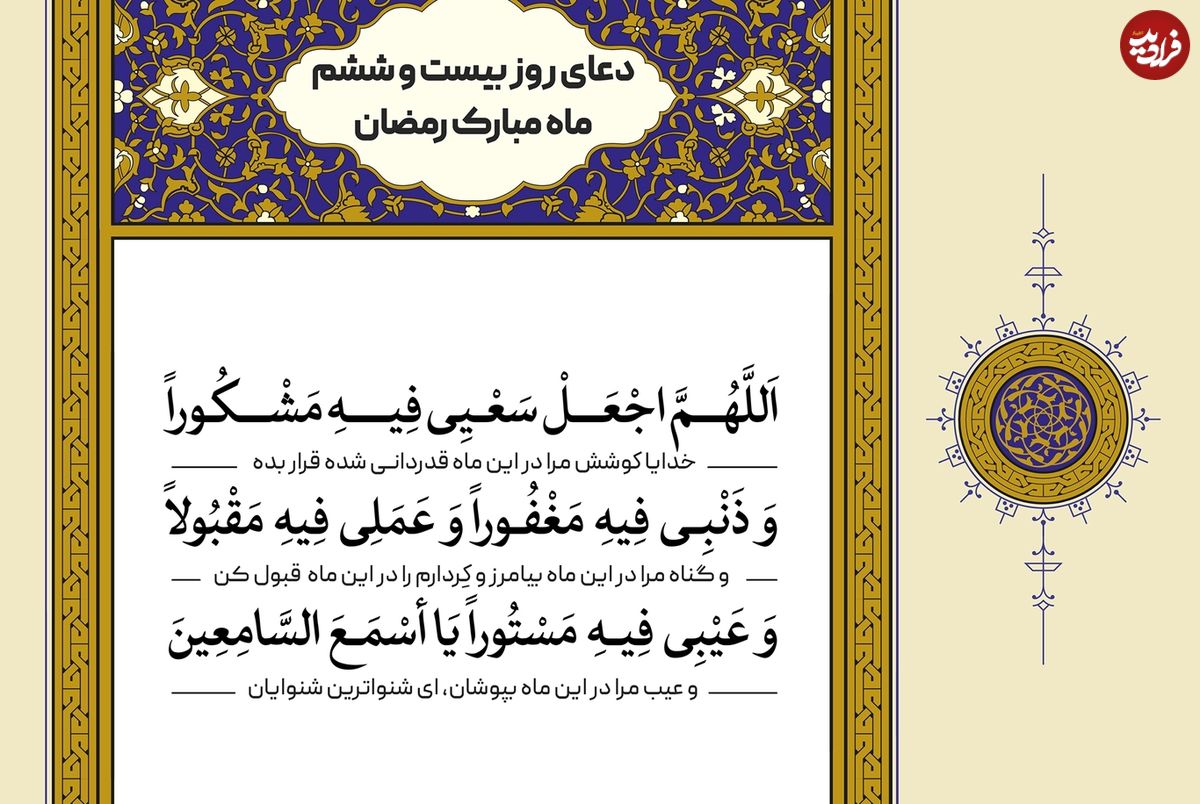 دعای روز بیست و ششم
ماه مبارک رمضان
فرادید
اَللَّهُمَّ اجْعَلْ سَعْیِی فِیهِ مَشْکُوراً
خدایا کوشش مرا در این ماه قدردانی شده قرار بده
وَ ذَنْبِی فِیهِ مَغْفُوراً وَ عَمَلِی فِیهِ مَقْبُولاً
و گناه مرا در این ماه بیامرز و کِردارم را در این ماه قبول کن
وَ عَیْبِی فِیهِ مَسْتُوراً یَا أسْمَعَ السَّامِعِینَ
و عیب مرا در این ماه بپوشان، ای شنواترین شنوایان